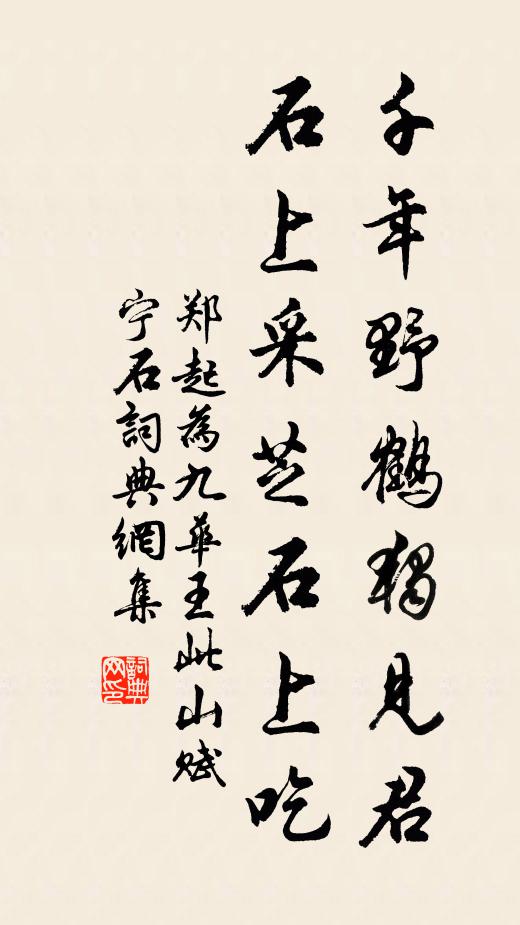 千年野鹤独见君
石上采芝石上吃
郑起為九華王此山赋
宁石詞典網集
詞典网印